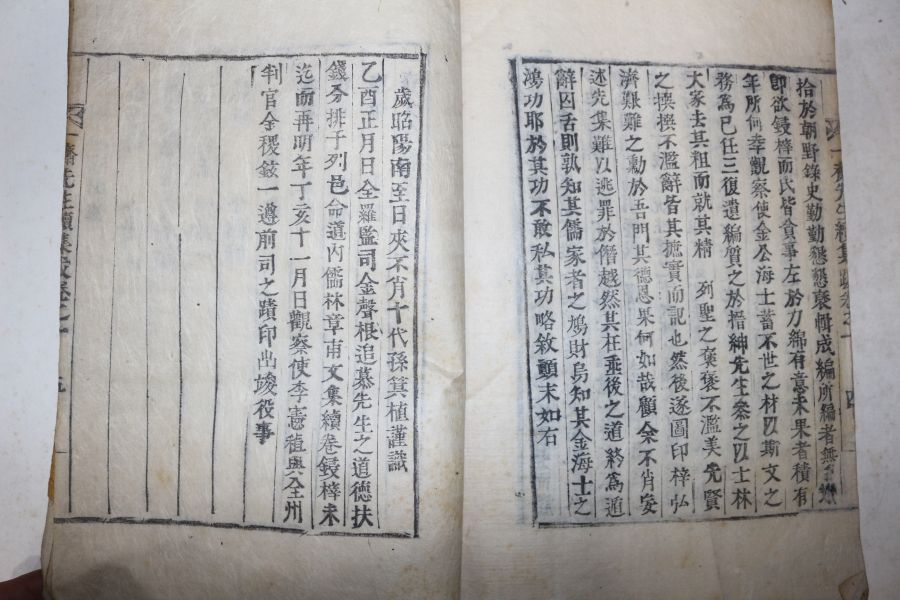 拾於朝野錄史勤勤懇懇裒輯成編所編者無
卽欲鋟梓而氏皆貪事左於力綿有意未果者積有
年所何幸觀察使金公海士蓄不世之材以斯文之
務為已任三復遺編質之於搢紳先生叅之以士林
大家去其粗而就其精 列聖之褒褒不濫美先賢
之撰撰不濫辭皆其摭實而記也然後遂圖印梓弘
濟艱難之勳於吾門其德恩果何如哉顧余不肖安
述先集難以逃罪於僭越然其在垂後之道終為遁
辭囚舌則孰知其儒家者之鳩財烏知其金海士之
鴻功耶於其功不敢私其功略敘顚末如右
歲昭陽南至日夾不肖十代孫箕植謹識
乙酉正月日全羅監司金聲根追慕先生之道德扶
錢分排于列邑命道內儒林章甫文集續卷鋟梓未
迄而再明年丁亥十一月日觀察使李憲稙與全州
判官金稷鉉一遵前司之蹟印出竣役事